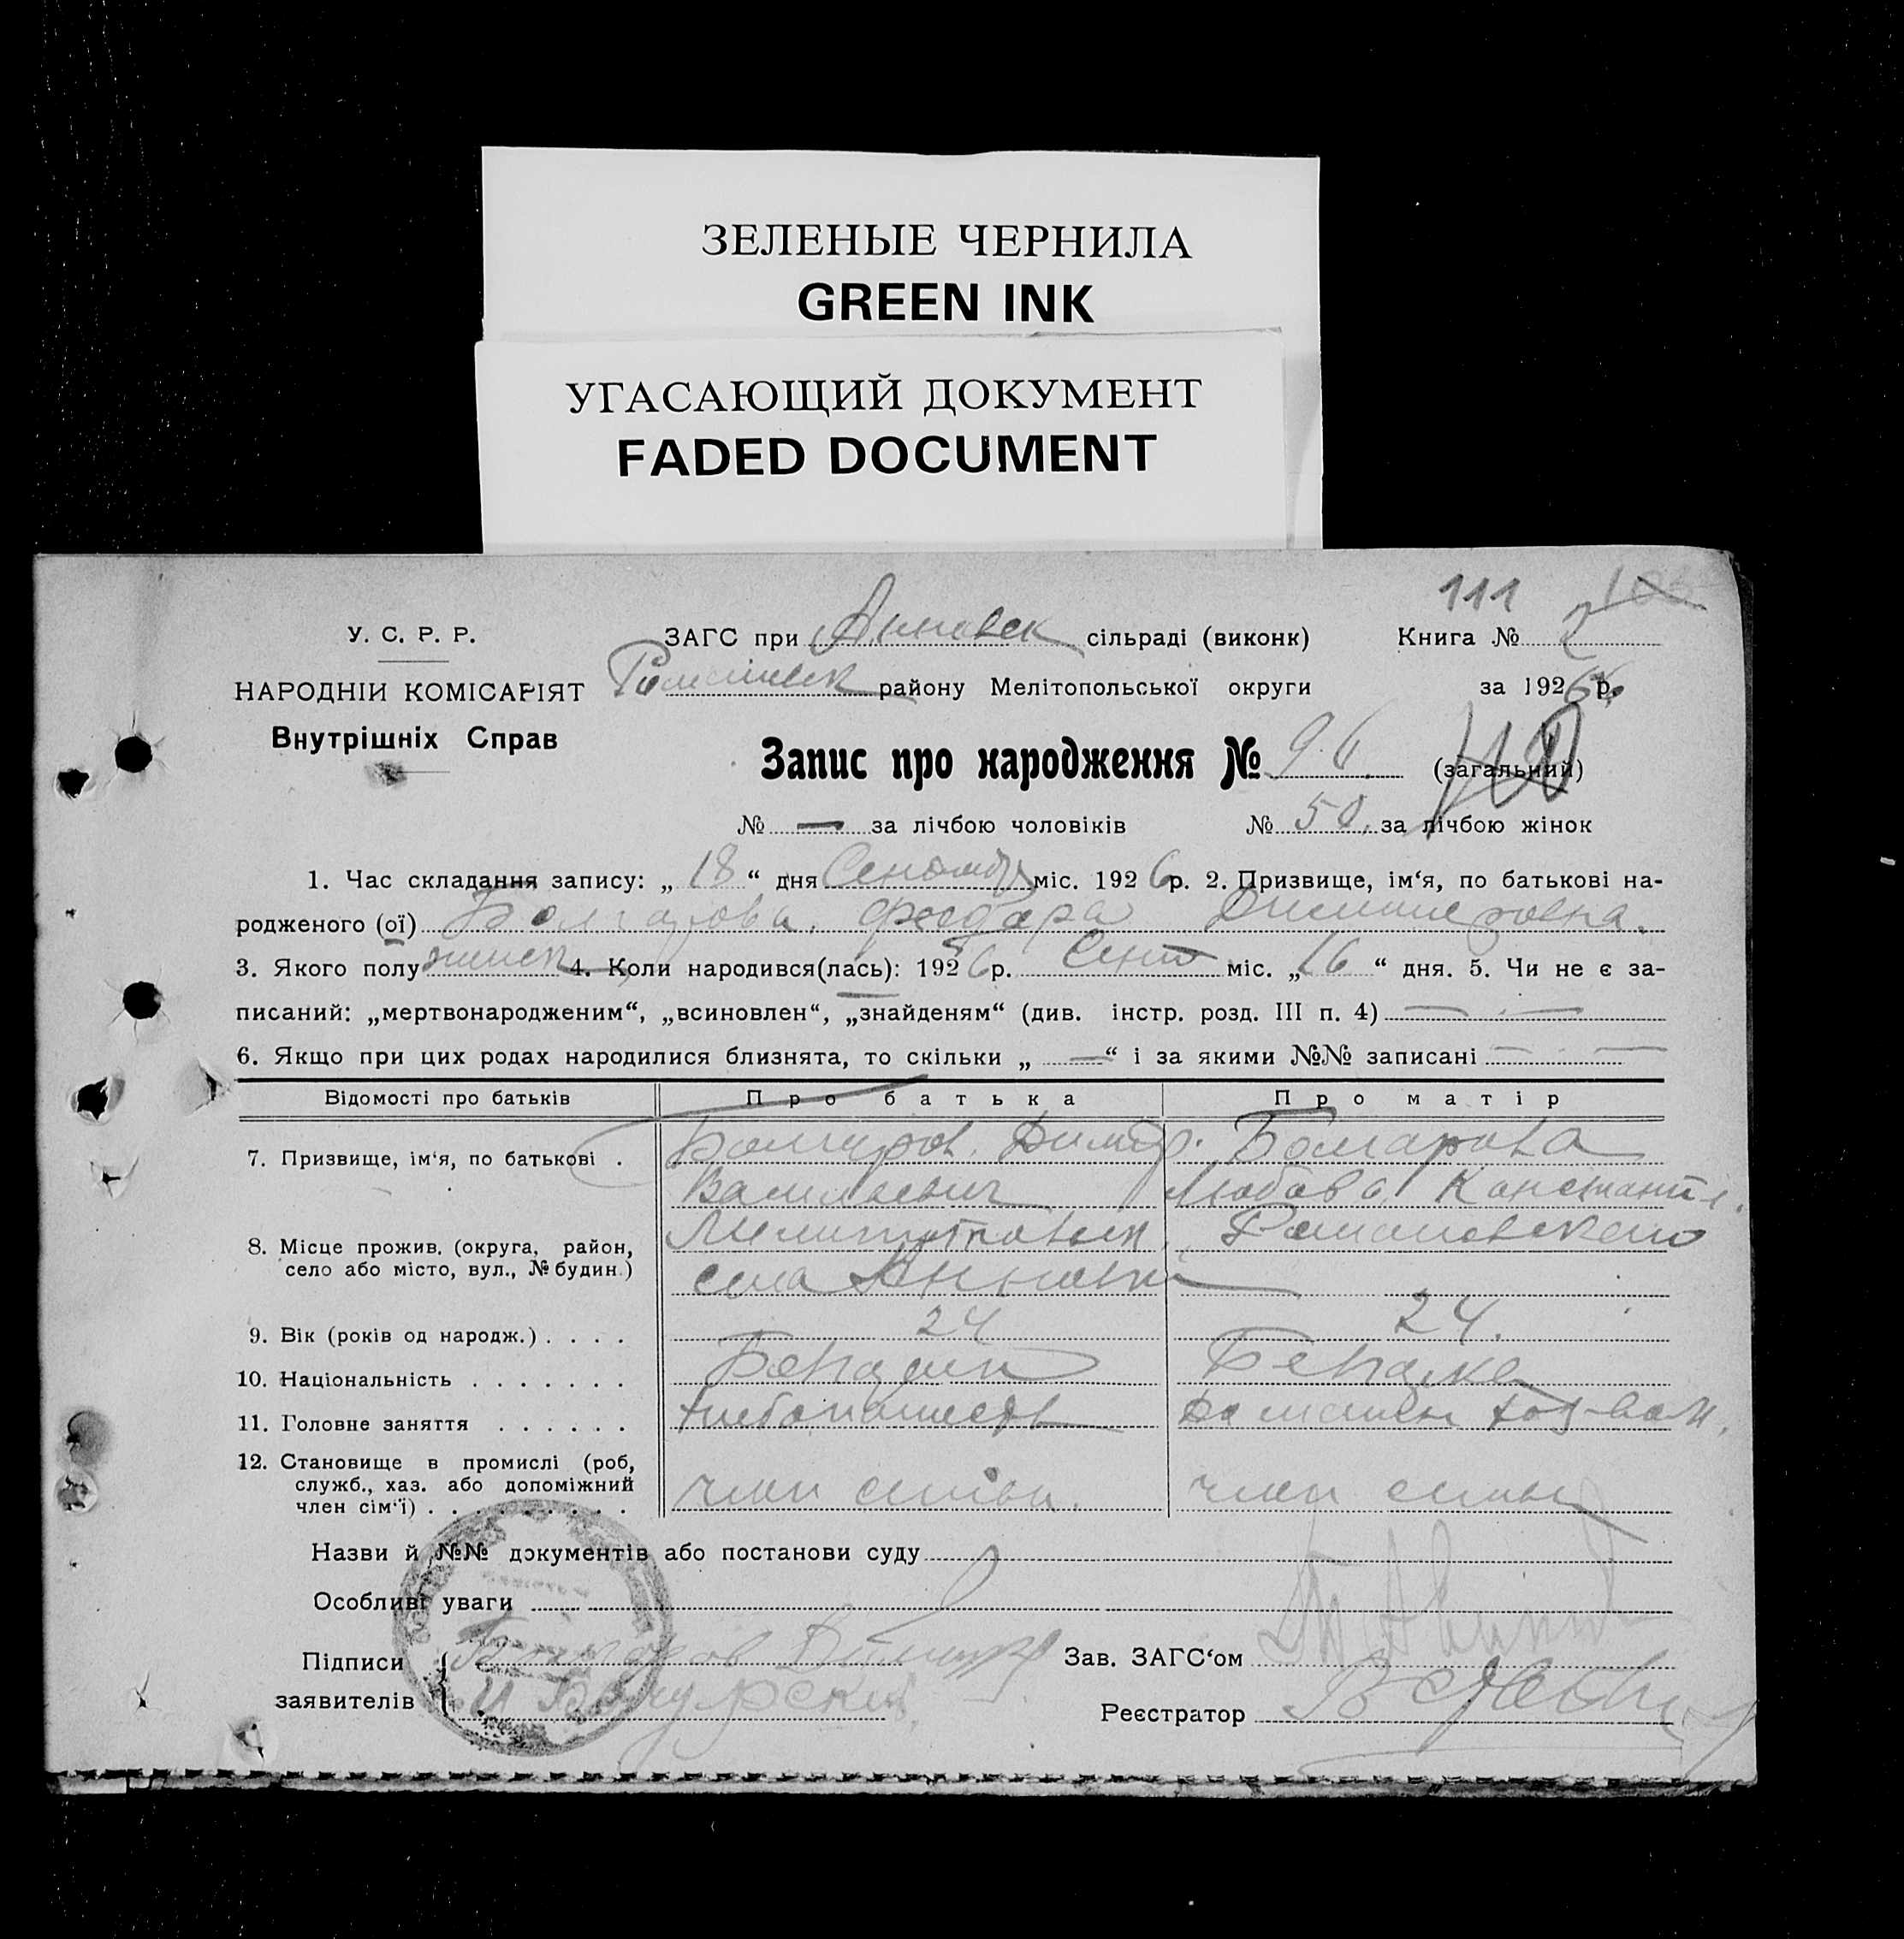 ЗЕЛЕНЫЕ ЧЕРНИЛА
GREEN INK
УГАСАЮЩИЙ ДОКУМЕНТ
FADED DOCUMENT
111
У. С. Р. Р.
ЗАГС при Анновск сільраді (виконк) Книга № 2
НАРОДНІИ КОМІСАРІЯТ
району Мелітопольської округи за 1926 р.
Внутрішніх Справ
Запис про народження № 96. (загальний)
№ — за лічбою чоловіків № 50. за лічбою жінок
1. Час складання запису: „ 18 “ дня міс. 1926 р. 2. Призвище, ім‘я, по батькові на-
родженого (ої) Болгарова. Федора Дмитровна.
3. Якого полу женск 4. Коли народився(лась): 1926 р. Сент міс. „ 16 “ дня. 5. Чи не є за-
писаний: „мертвонародженим“, „всиновлен“, „знайденям“ (див. інстр. розд. III п. 4) — —
6. Якщо при цих родах народилися близнята, то скільки „ — “ і за якими №№ записані — —
Відомості про батьків Про батька Про матір
7. Призвище, ім‘я, по батькові . Болгаров. Димитр. Болгарова
Васильевич Любовь Константи.
8. Місце прожив. (округа, район, Романовского
село або місто, вул., № будин.) села Анновки
9. Вік (років од народж.) . . . . 24 24.
10. Національність . . . . . . .
11. Головне заняття . . . . . . Хлебопашест
12. Становище в промислі (роб,
служб., хаз. або допоміжний член семьи. член семьи
член сім‘ї) . . . . . . . . .
Назви й №№ документів або постанови суду
Особливі уваги
Підписи Болгаров Зав. ЗАГС‘ом
заявителів
Реєстратор